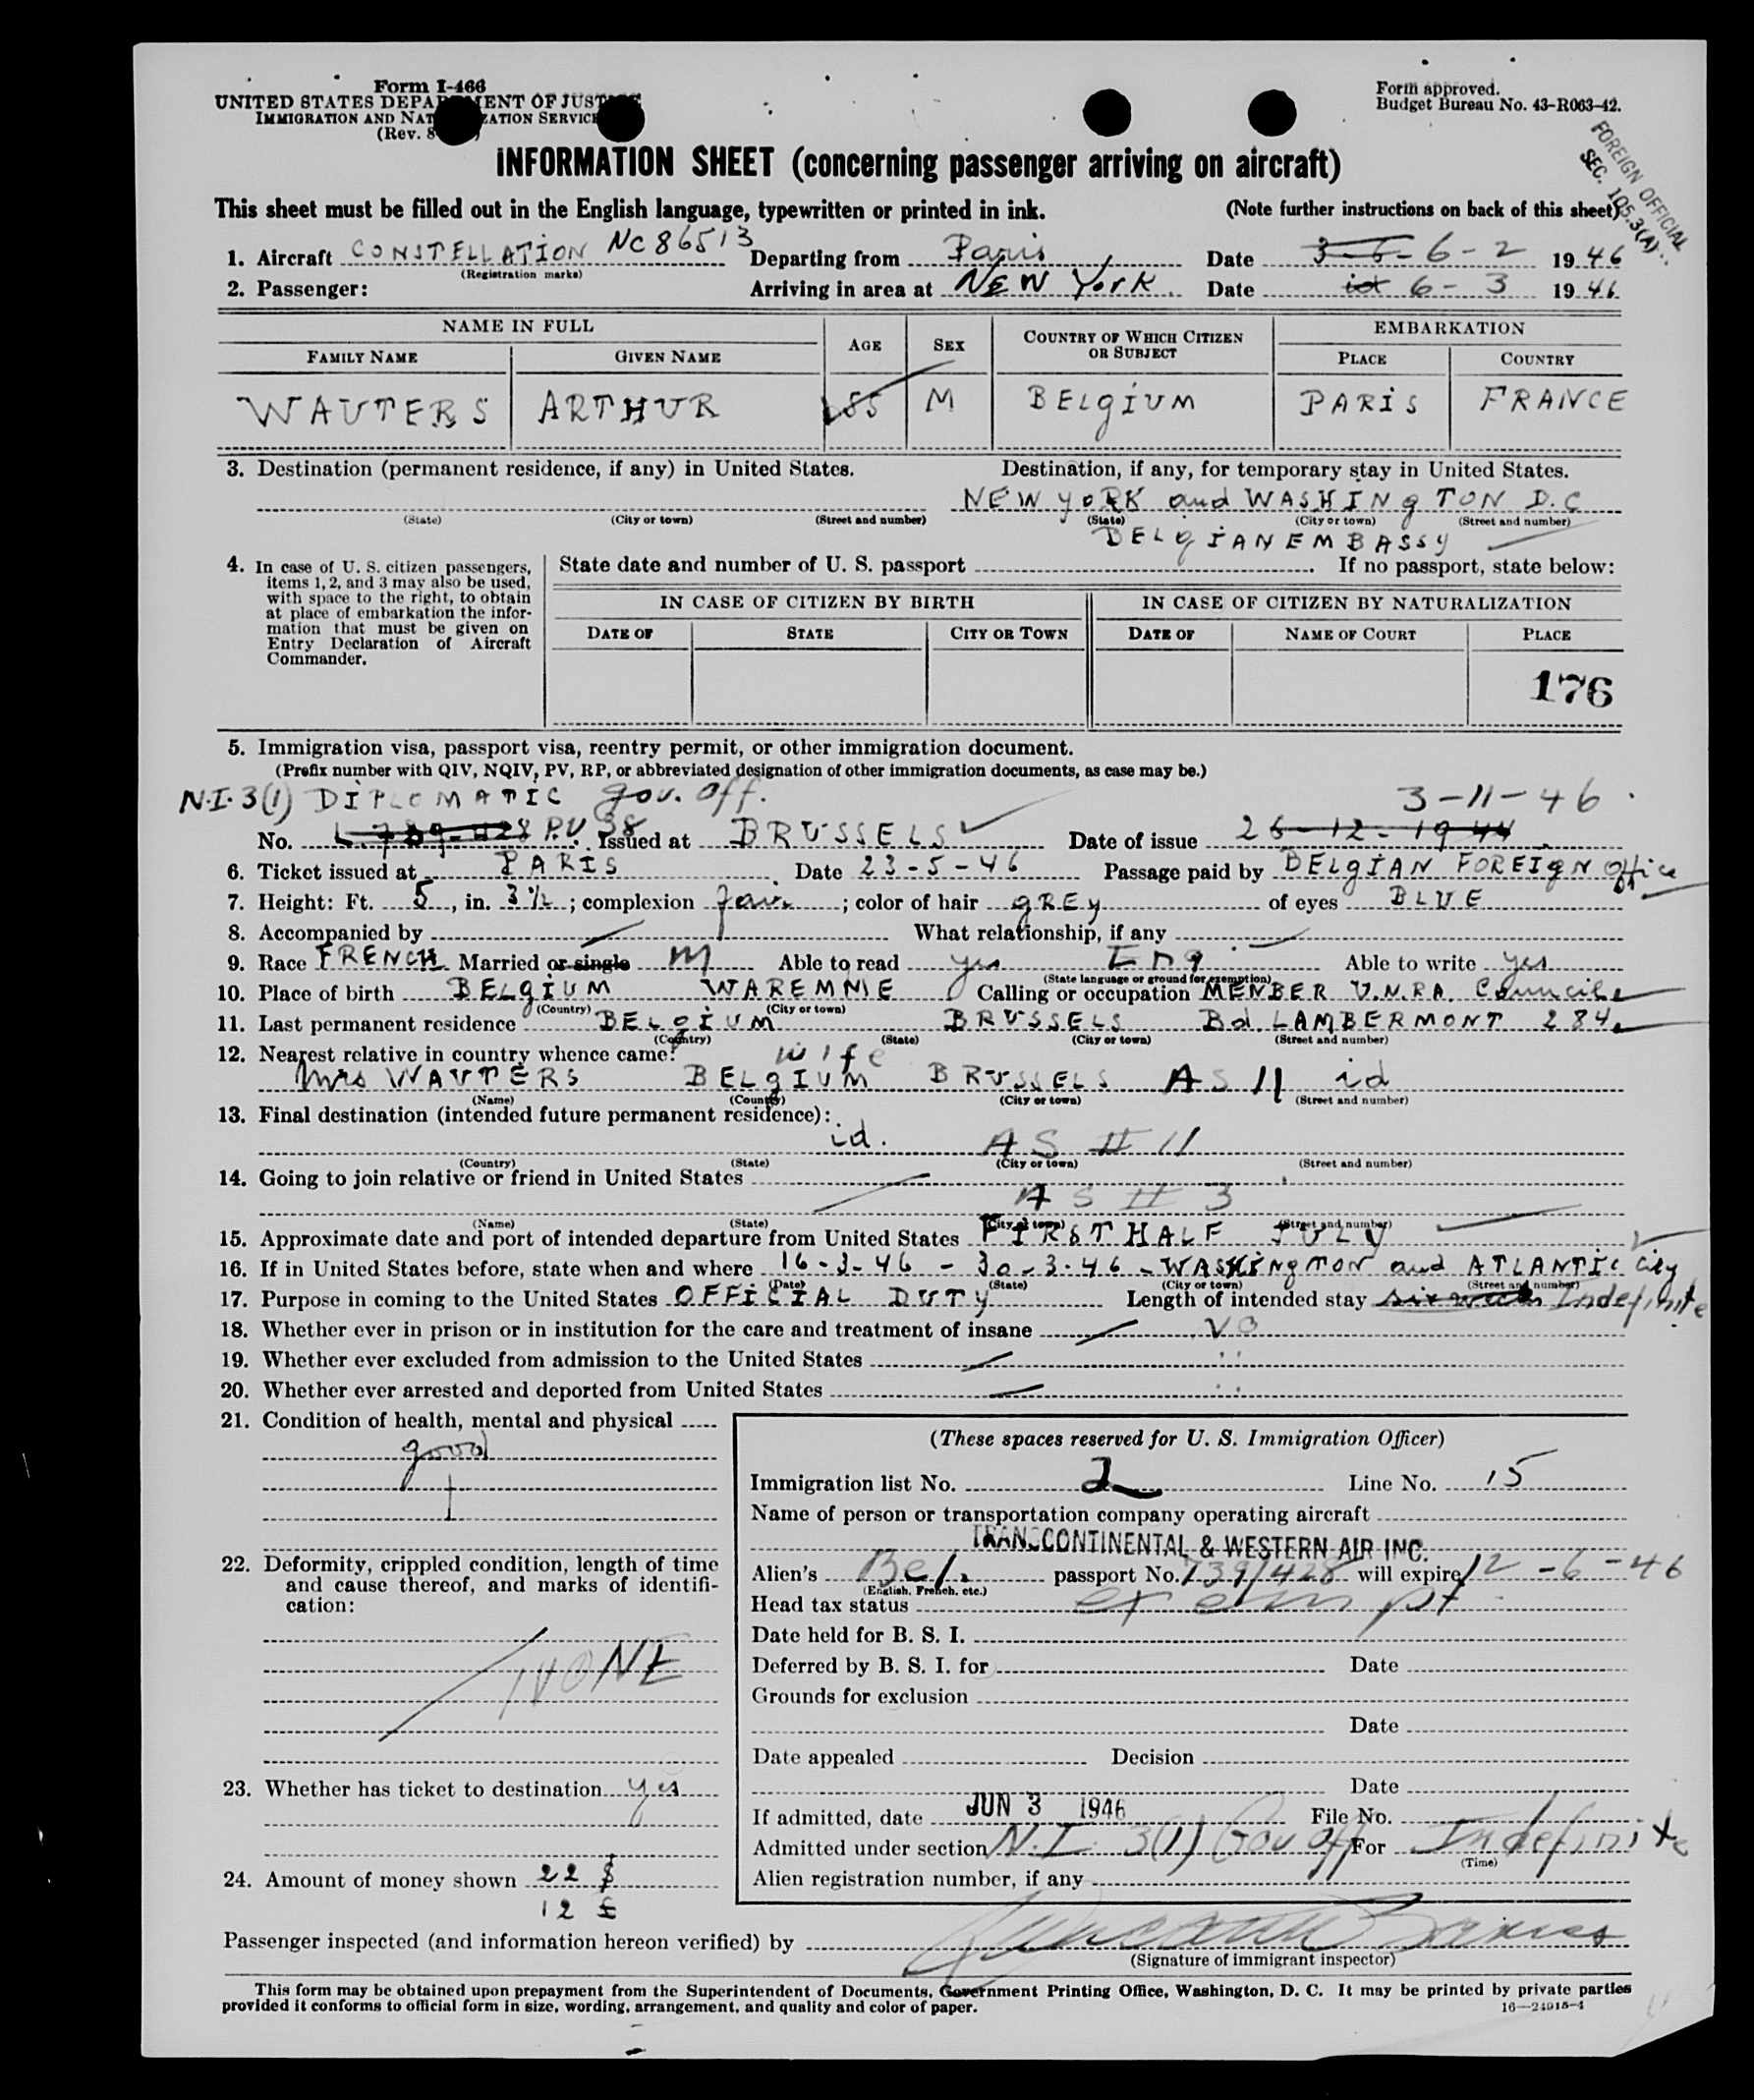 Form I-466
UNITED STATES DEPARTMENT OF JUSTICE
IMMIGRATION AND NATURALIZATION SERVICE
(Rev. 8
Form approved.
Budget Bureau No. 43-R063-42.
FOREIGN OFFICIAL
SEC. 105.3(A)
INFORMATION SHEET (concerning passenger arriving on aircraft)
This sheet must be filled out in the English language, typewritten or printed in ink. (Note further instructions on back of this sheet)
1. Aircraft CONSTELLATION NC86513 Departing from Paris Date 3-6- 6-2 1946
(Registration marks)
2. Passenger: Arriving in area at NEW York Date id 6-3 1946
NAME IN FULL AGE SEX COUNTRY OF WHICH CITIZEN OR SUBJECT EMBARKATION
FAMILY NAME GIVEN NAME PLACE COUNTRY
WAUTERS ARTHUR 55 M BELGIUM PARIS FRANCE
3. Destination (permanent residence, if any) in United States. Destination, if any, for temporary stay in United States.
NEW YORK and WASHINGTON D.C
(State) (City or town) (Street and number) (State) (City or town) (Street and number)
BELGIAN EMBASSY
4. In case of U. S. citizen passengers, items 1, 2, and 3 may also be used, with space to the right, to obtain at place of embarkation the information that must be given on Entry Declaration of Aircraft Commander.
State date and number of U. S. passport . If no passport, state below:
IN CASE OF CITIZEN BY BIRTH IN CASE OF CITIZEN BY NATURALIZATION
DATE OF STATE CITY OR TOWN DATE OF NAME OF COURT PLACE
176
5. Immigration visa, passport visa, reentry permit, or other immigration document.
(Prefix number with QIV, NQIV, PV, RP, or abbreviated designation of other immigration documents, as case may be.)
N.I. 3(1) DIPLOMATIC gov. off. 3-11-46
No. P.V 38 Issued at BRUSSELS Date of issue 26-12-1944
6. Ticket issued at PARIS Date 23-5-46 Passage paid by BELGIAN FOREIGN Office
7. Height: Ft. 5, in. 3½; complexion fair; color of hair GREY of eyes BLUE
8. Accompanied by What relationship, if any
9. Race FRENCH Married or single M Able to read yes Eng Able to write yes
(State language or ground for exemption)
10. Place of birth BELGIUM WAREMNIE Calling or occupation MENBER U.N.R.A. Council
(Country) (City or town)
11. Last permanent residence BELGIUM BRUSSELS Bd LAMBERMONT 284
(Country) (State) (City or town) (Street and number)
12. Nearest relative in country whence came: wife
Mrs WAUTERS BELGIUM BRUSSELS AS 11 id
(Name) (Country) (City or town) (Street and number)
13. Final destination (intended future permanent residence):
id. AS # 11
(Country) (State) (City or town) (Street and number)
14. Going to join relative or friend in United States
AS # 3
(Name) (State) (City or town) (Street and number)
15. Approximate date and port of intended departure from United States FIRST HALF JULY
16. If in United States before, state when and where 16-3-46 - 30-3-46 - WASHINGTON and ATLANTIC City
(Date) (State) (City or town) (Street and number)
17. Purpose in coming to the United States OFFICIAL DUTY Length of intended stay six weeks Indefinite
18. Whether ever in prison or in institution for the care and treatment of insane
19. Whether ever excluded from admission to the United States
20. Whether ever arrested and deported from United States
21. Condition of health, mental and physical
good
22. Deformity, crippled condition, length of time and cause thereof, and marks of identification:
NONE
23. Whether has ticket to destination yes
24. Amount of money shown 22 $
12 £
(These spaces reserved for U. S. Immigration Officer)
Immigration list No. 2 Line No. 15
Name of person or transportation company operating aircraft
TRANSCONTINENTAL & WESTERN AIR INC.
Alien's Bel. passport No. 739/428 will expire 12-6-46
(English, French, etc.)
Head tax status exempt
Date held for B. S. I.
Deferred by B. S. I. for Date
Grounds for exclusion
Date
Date appealed Decision
Date
If admitted, date JUN 3 1946 File No.
Admitted under section N.I. 3(1) Gov off For Indefinite
(Time)
Alien registration number, if any
Passenger inspected (and information hereon verified) by
(Signature of immigrant inspector)
This form may be obtained upon prepayment from the Superintendent of Documents, Government Printing Office, Washington, D. C. It may be printed by private parties
provided it conforms to official form in size, wording, arrangement, and quality and color of paper. 16—24915-4